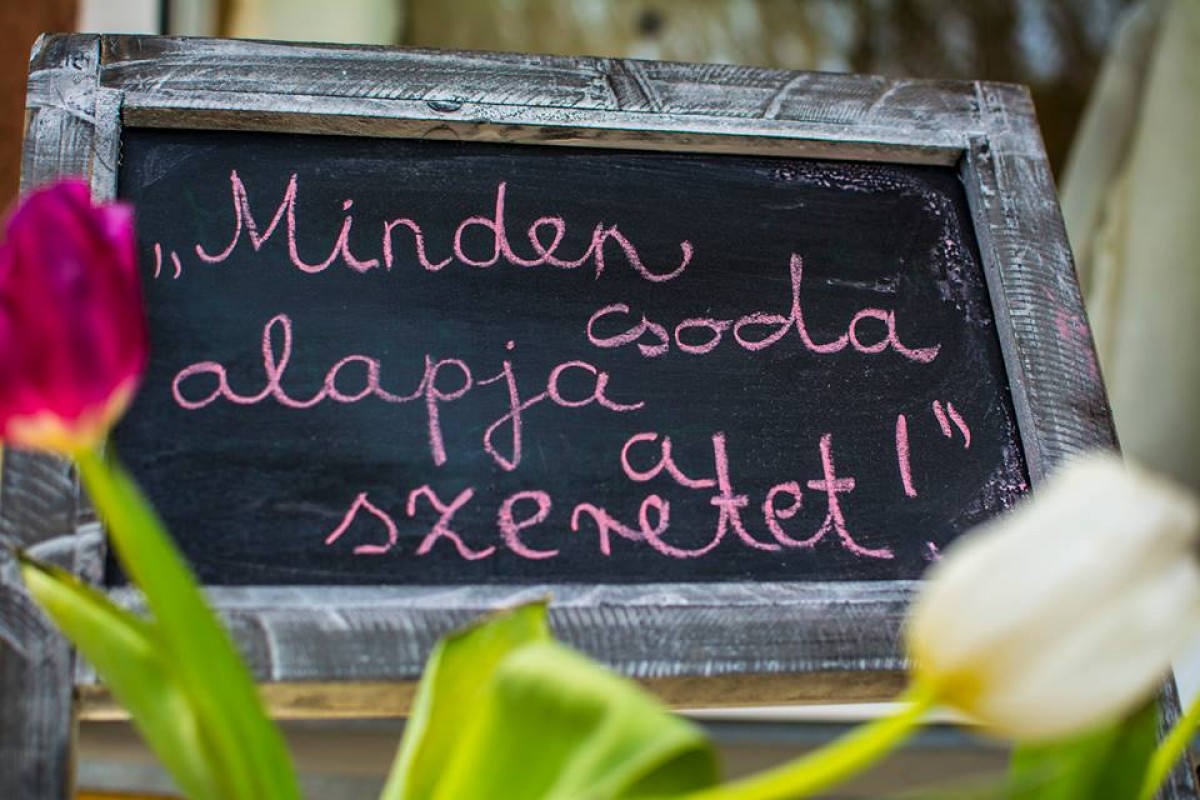 „Minden
csoda
alapja
a
szeretet!”